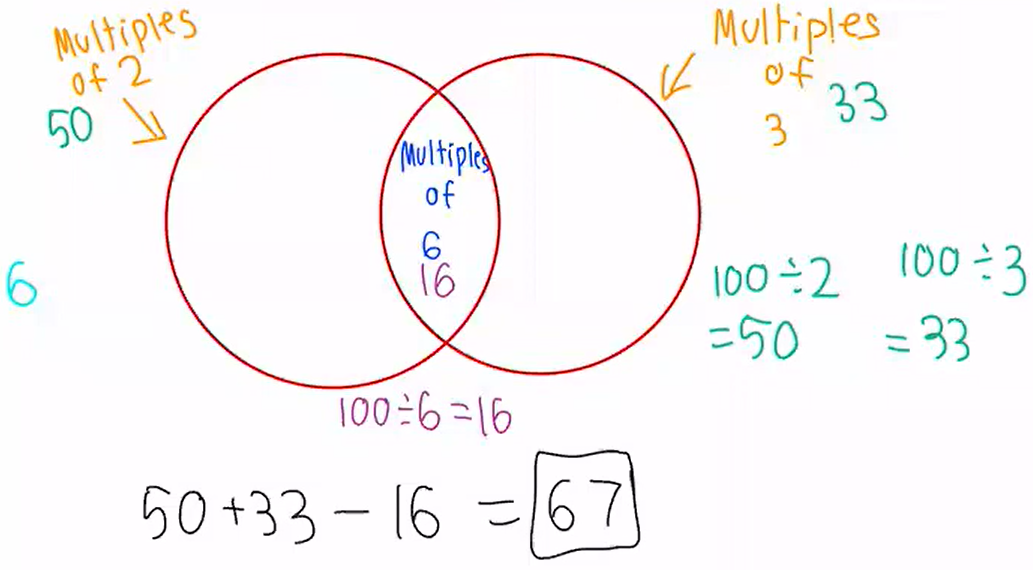 Multiples
of 2
50
Multiples
of
3
33
Multiples
of
6
16
6
100÷2
=50
100÷3
=33
100÷6=16
50+33-16=67